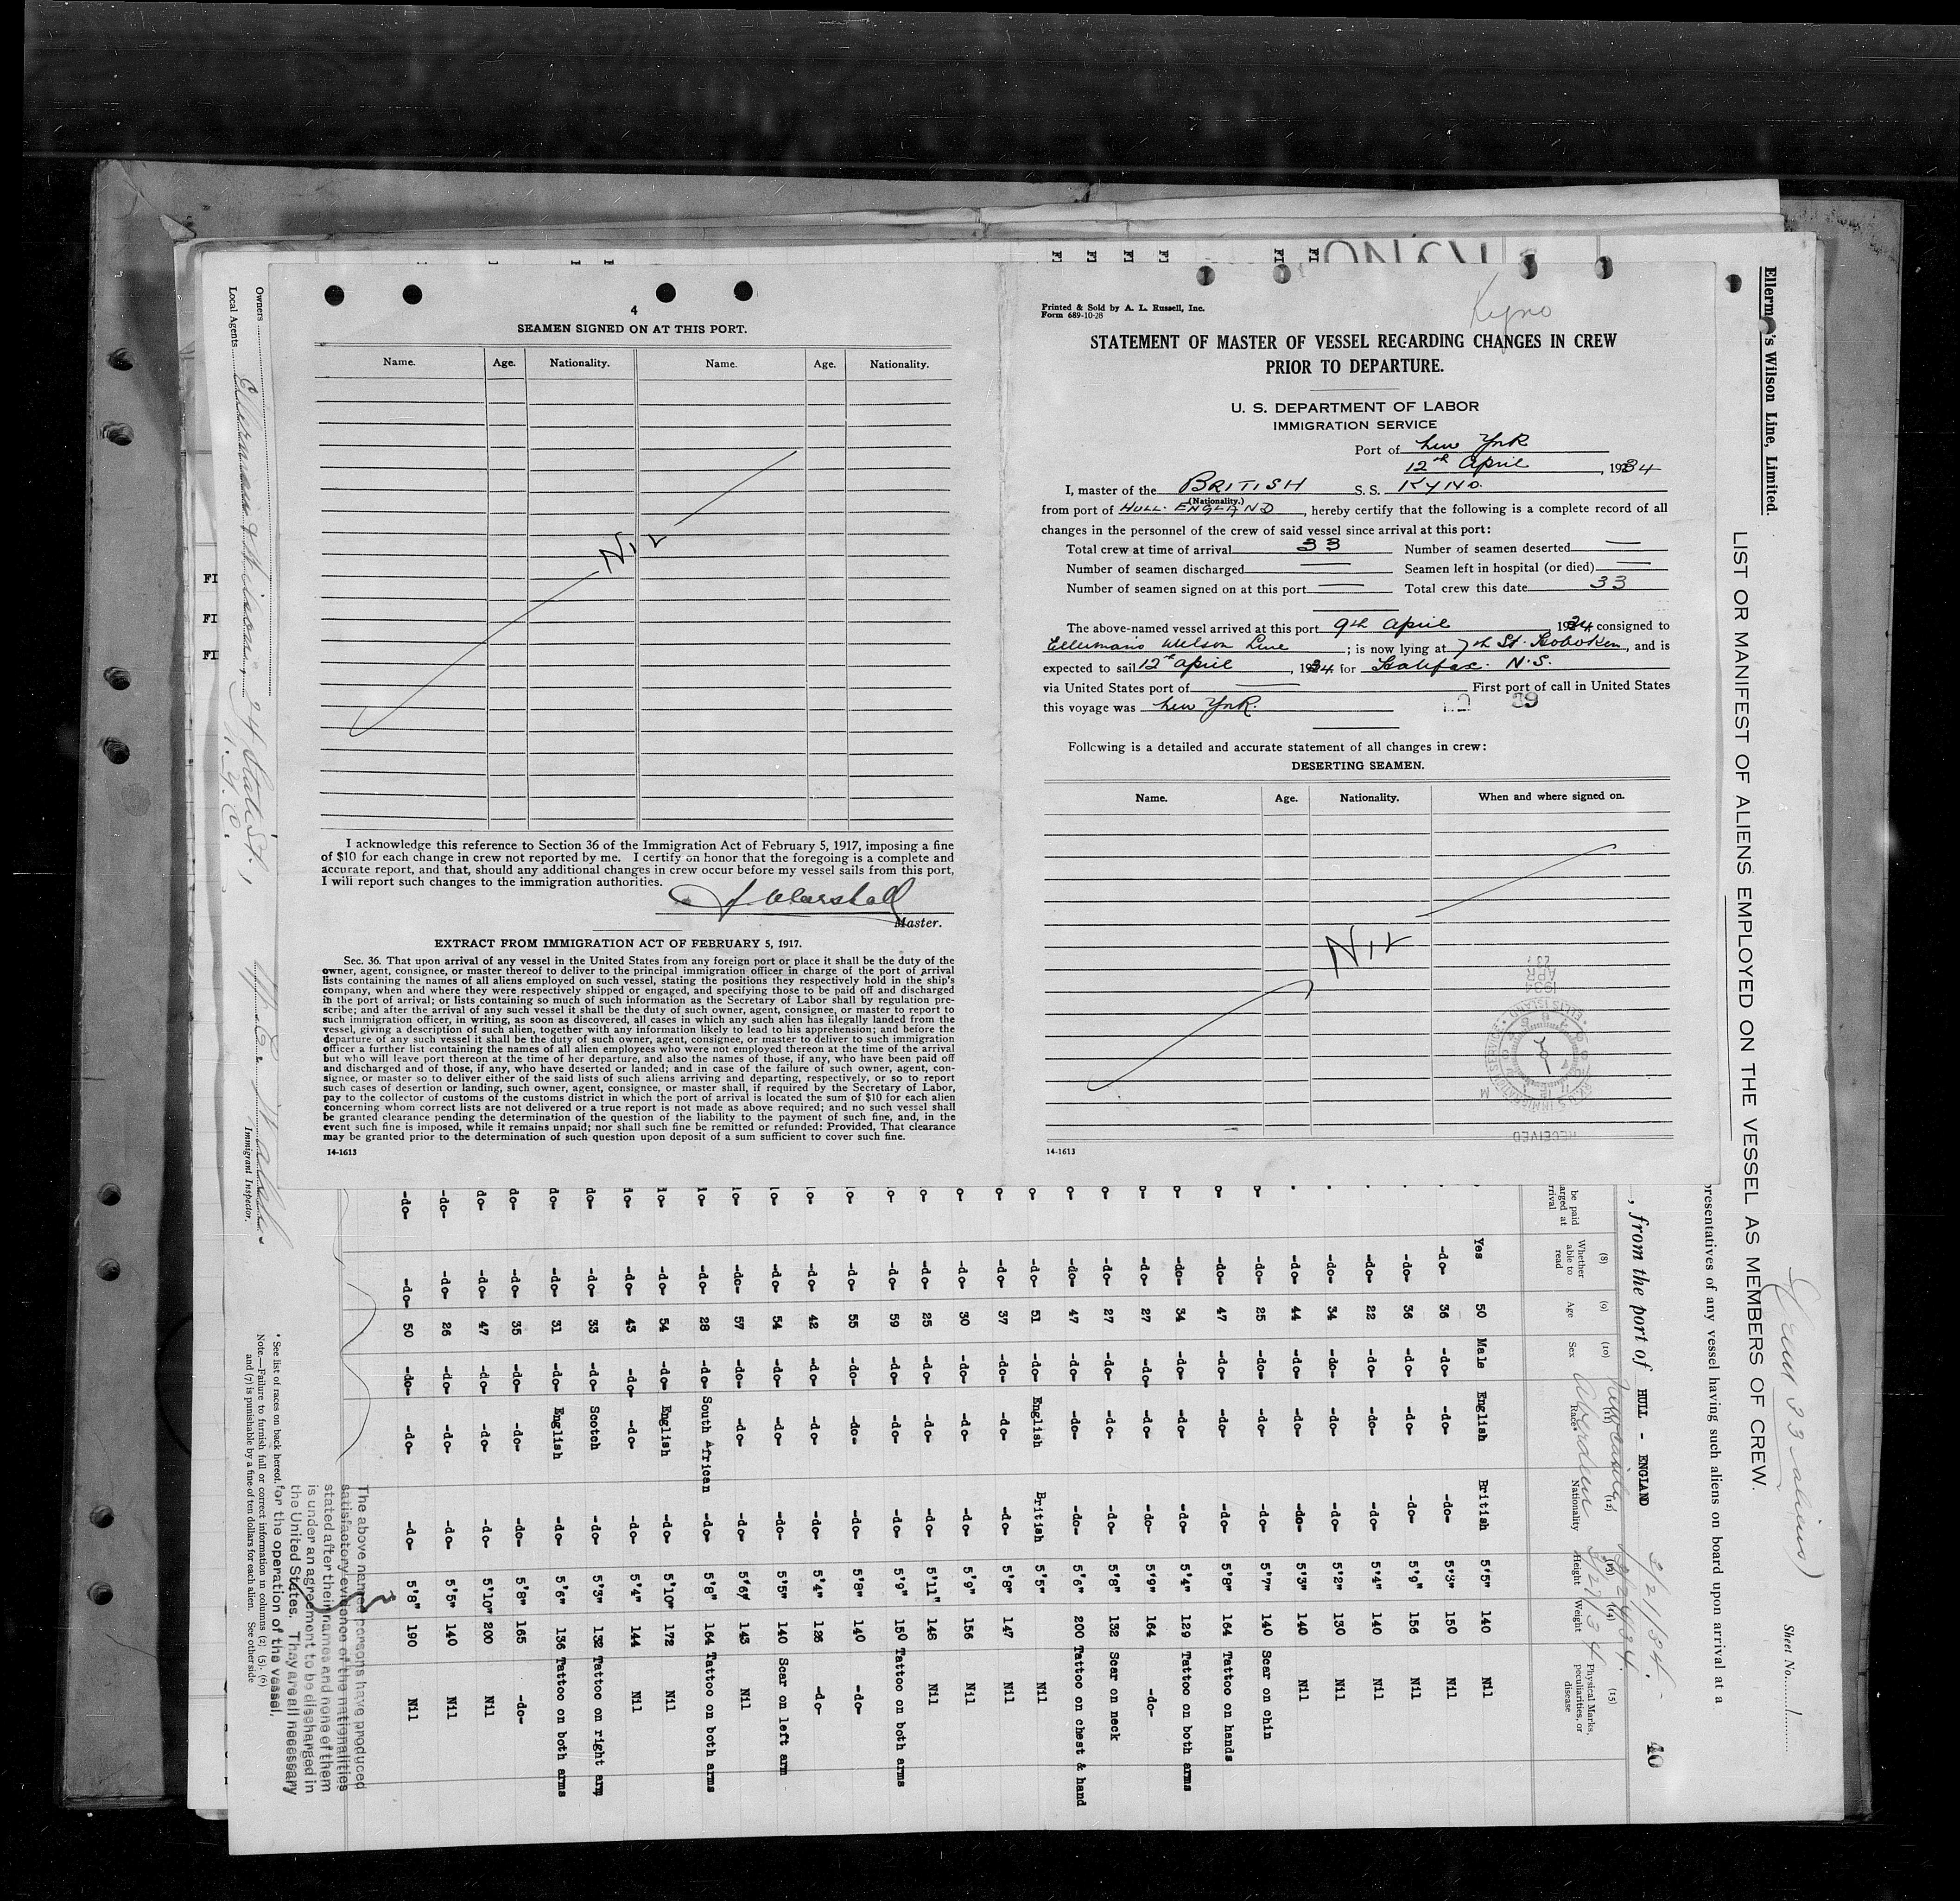 4
SEAMEN SIGNED ON AT THIS PORT.
Name. Age. Nationality. Name. Age. Nationality.
Nil
I acknowledge this reference to Section 36 of the Immigration Act of February 5, 1917, imposing a fine
of $10 for each change in crew not reported by me. I certify on honor that the foregoing is a complete and
accurate report, and that, should any additional changes in crew occur before my vessel sails from this port,
I will report such changes to the immigration authorities.
J. Marshall
Master.
EXTRACT FROM IMMIGRATION ACT OF FEBRUARY 5, 1917.
Sec. 36. That upon arrival of any vessel in the United States from any foreign port or place it shall be the duty of the
owner, agent, consignee, or master thereof to deliver to the principal immigration officer in charge of the port of arrival
lists containing the names of all aliens employed on such vessel, stating the positions they respectively hold in the ship's
company, when and where they were respectively shipped or engaged, and specifying those to be paid off and discharged
in the port of arrival; or lists containing so much of such information as the Secretary of Labor shall by regulation pre-
scribe; and after the arrival of any such vessel it shall be the duty of such owner, agent, consignee, or master to report to
such immigration officer, in writing, as soon as discovered, all cases in which any such alien has illegally landed from the
vessel, giving a description of such alien, together with any information likely to lead to his apprehension; and before the
departure of any such vessel it shall be the duty of such owner, agent, consignee, or master to deliver to such immigration
officer a further list containing the names of all alien employees who were not employed thereon at the time of the arrival
but who will leave port thereon at the time of her departure, and also the names of those, if any, who have been paid off
and discharged and of those, if any, who have deserted or landed; and in case of the failure of such owner, agent, con-
signee, or master so to deliver either of the said lists of such aliens arriving and departing, respectively, or so to report
such cases of desertion or landing, such owner, agent, consignee, or master shall, if required by the Secretary of Labor,
pay to the collector of customs of the customs district in which the port of arrival is located the sum of $10 for each alien
concerning whom correct lists are not delivered or a true report is not made as above required; and no such vessel shall
be granted clearance pending the determination of the question of the liability to the payment of such fine, and, in the
event such fine is imposed, while it remains unpaid; nor shall such fine be remitted or refunded: Provided, That clearance
may be granted prior to the determination of such question upon deposit of a sum sufficient to cover such fine.
14-1613
Kyno
Printed & Sold by A. L. Russell, Inc.
Form 689-10-28
STATEMENT OF MASTER OF VESSEL REGARDING CHANGES IN CREW
PRIOR TO DEPARTURE.
U. S. DEPARTMENT OF LABOR
IMMIGRATION SERVICE
Port of New York
12th April, 1934
I, master of the BRITISH S. S. KYNO.
(Nationality.)
from port of HULL. ENGLAND, hereby certify that the following is a complete record of all
changes in the personnel of the crew of said vessel since arrival at this port:
Total crew at time of arrival 33 Number of seamen deserted —
Number of seamen discharged — Seamen left in hospital (or died) —
Number of seamen signed on at this port — Total crew this date 33
The above-named vessel arrived at this port 9th April 1934 consigned to
Ellerman's Wilson Line; is now lying at 7th St. Hoboken, and is
expected to sail 12th April, 1934 for Halifax. N.S.
via United States port of — First port of call in United States
this voyage was New York.
39
Following is a detailed and accurate statement of all changes in crew:
DESERTING SEAMEN.
Name. Age. Nationality. When and where signed on.
Nil
RECEIVED
ELLIS ISLAND
1934
APR
14-1613
Ellerman's Wilson Line, Limited.
LIST OR MANIFEST OF ALIENS EMPLOYED ON THE VESSEL AS MEMBERS OF CREW.
(Crew 33 aliens)
Sheet No. 1
presentatives of any vessel having such aliens on board upon arrival at a
, from the port of HULL - ENGLAND 3/21/34.
40
Aberdeen 3/27/34
(8) Whether able to read (9) Age (10) Sex (11) Race (12) Nationality (13) Height (14) Weight (15) Physical Marks, peculiarities, or disease
Yes 50 Male English British 5'5" 140 Nil
-do- 36 -do- -do- -do- 5'3" 150 Nil
-do- 36 -do- -do- -do- 5'9" 156 Nil
-do- 22 -do- -do- -do- 5'4" 140 Nil
-do- 34 -do- -do- -do- 5'2" 130 Nil
-do- 44 -do- -do- -do- 5'3" 140 Nil
-do- 25 -do- -do- -do- 5'7" 140 Scar on chin
-do- 47 -do- -do- -do- 5'8" 164 Tattoo on hands
-do- 34 -do- -do- -do- 5'4" 129 Tattoo on both arms
-do- 27 -do- -do- -do- 5'9" 164 -do-
-do- 27 -do- -do- -do- 5'8" 132 Scar on neck
-do- 47 -do- -do- -do- 5'6" 200 Tattoo on chest & hand
-do- 51 -do- English British 5'5" Nil
-do- 37 -do- -do- -do- 5'8" 147 Nil
-do- 30 -do- -do- -do- 5'9" 156 Nil
-do- 25 -do- -do- -do- 5'11" 148 Nil
-do- 59 -do- -do- -do- 5'9" 150 Tattoo on both arms
-do- 55 -do- -do- -do- 5'8" 140 -do-
-do- 42 -do- -do- -do- 5'4" 126 -do-
-do- 54 -do- -do- -do- 5'5" 140 Scar on left arm
-do- 57 -do- -do- -do- 5'6" 143 Nil
-do- 28 -do- South African -do- 5'8" 164 Tattoo on both arms
-do- 54 -do- English -do- 5'10" 172 Nil
-do- 43 -do- -do- -do- 5'4" 144 Nil
-do- 33 -do- Scotch -do- 5'3" 132 Tattoo on right arm
-do- 31 -do- English -do- 5'6" 136 Tattoo on both arms
-do- 35 -do- -do- -do- 5'8" 165 -do-
-do- 47 -do- -do- -do- 5'10" 200 Nil
-do- 26 -do- -do- -do- 5'5" 140 Nil
-do- -do- 50 -do- -do- -do- 5'8" 190 Nil
The above named persons have produced
satisfactory evidence of the nationalities
stated after their names and none of them
is under an agreement to be discharged in
the United States. They are all necessary
for the operation of the vessel.
* See list of races on back hereof.
Note.—Failure to furnish full or correct information in columns (2) (5) (6)
and (7) is punishable by a fine of ten dollars for each alien. See other side
Owners
Local Agents Ellerman's Wilson, 24 State St.,
N.Y.C.
Immigrant Inspector.